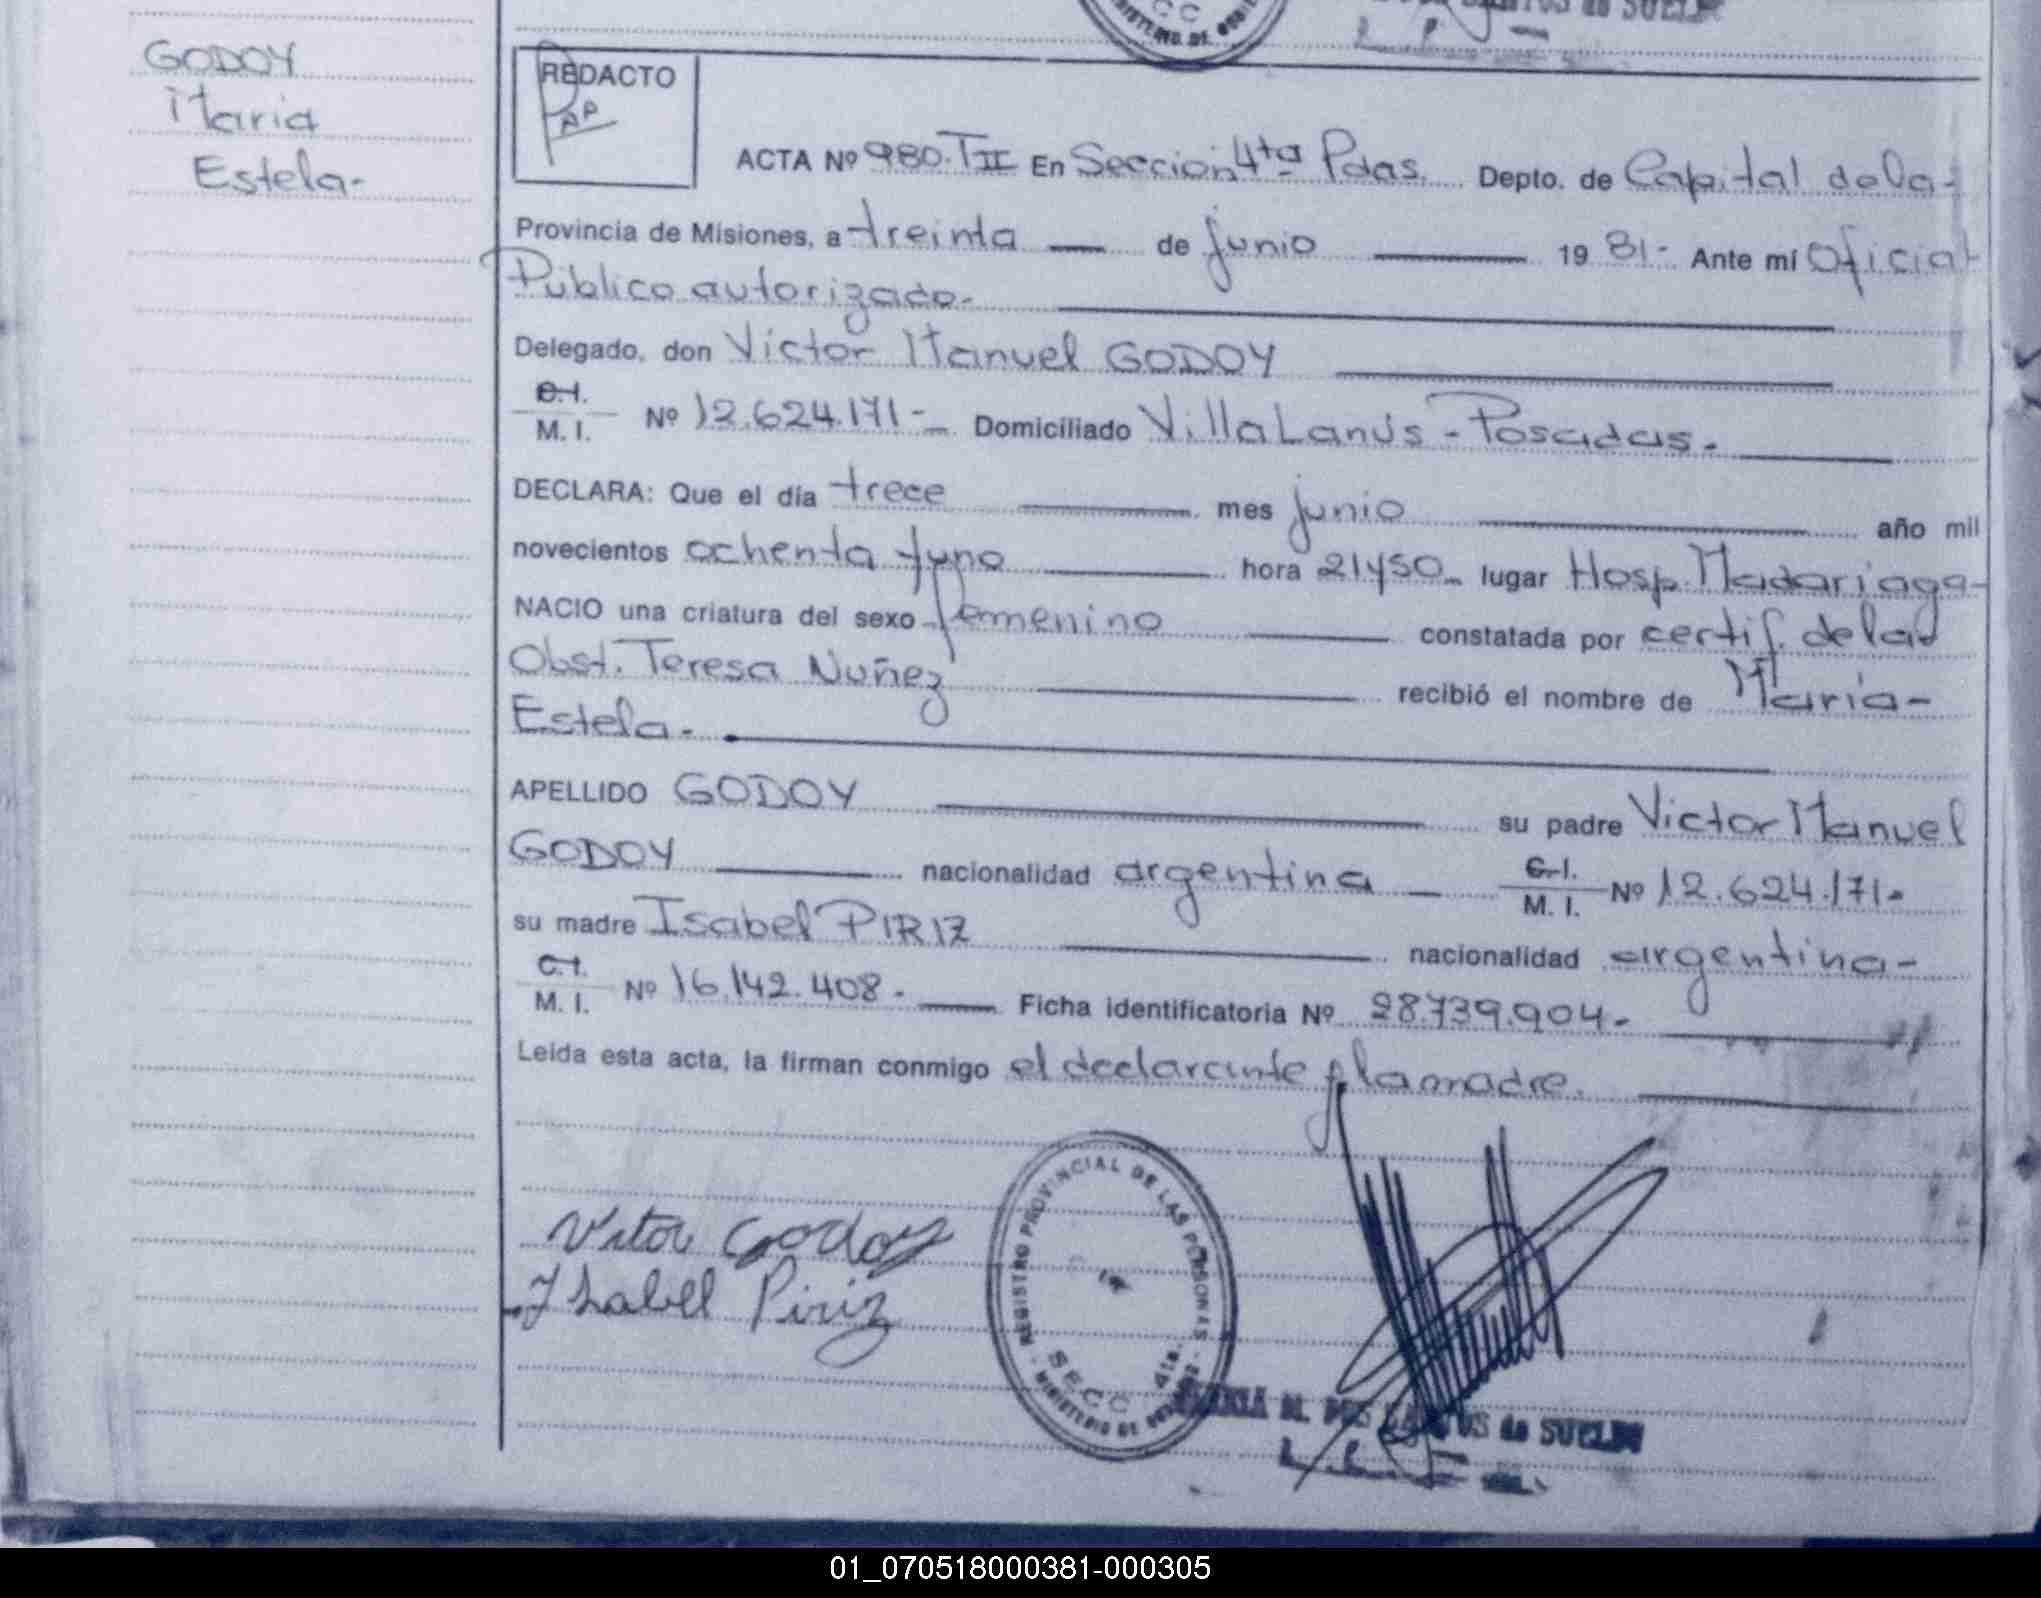 GODOY
Maria
Estela-
REDACTO
ACTA Nº 980. TII En Sección 4ta Pdas. Depto. de Capital de la-
Provincia de Misiones, a treinta — de junio — 19 81- Ante mí Oficial
Público autorizado.
Delegado, don Victor Manuel GODOY
C.I.
M. I. Nº 12.624.171- Domiciliado Villa Lanús - Posadas.
DECLARA: Que el día trece — mes junio — año mil
novecientos ochenta y uno — hora 21y50- lugar Hosp. Madariaga-
NACIO una criatura del sexo femenino — constatada por certif. de la
Obst. Teresa Nuñez — recibió el nombre de María-
Estela.
APELLIDO GODOY — su padre Victor Manuel
GODOY — nacionalidad argentina — C.I.
M. I. Nº 12.624.171-
su madre Isabel PIRIZ — nacionalidad argentina-
C.I.
M. I. Nº 16.142.408. — Ficha identificatoria Nº 28.739.904-
Leida esta acta, la firman conmigo el declarante y la madre.
Vitor Godoy
Ysabel Piriz
REGISTRO PROVINCIAL DE LAS PERSONAS
SECC 4ta.
MINISTERIO DE GOBIERNO
MARIA M. DOS SANTOS de SUELDO
01_070518000381-000305